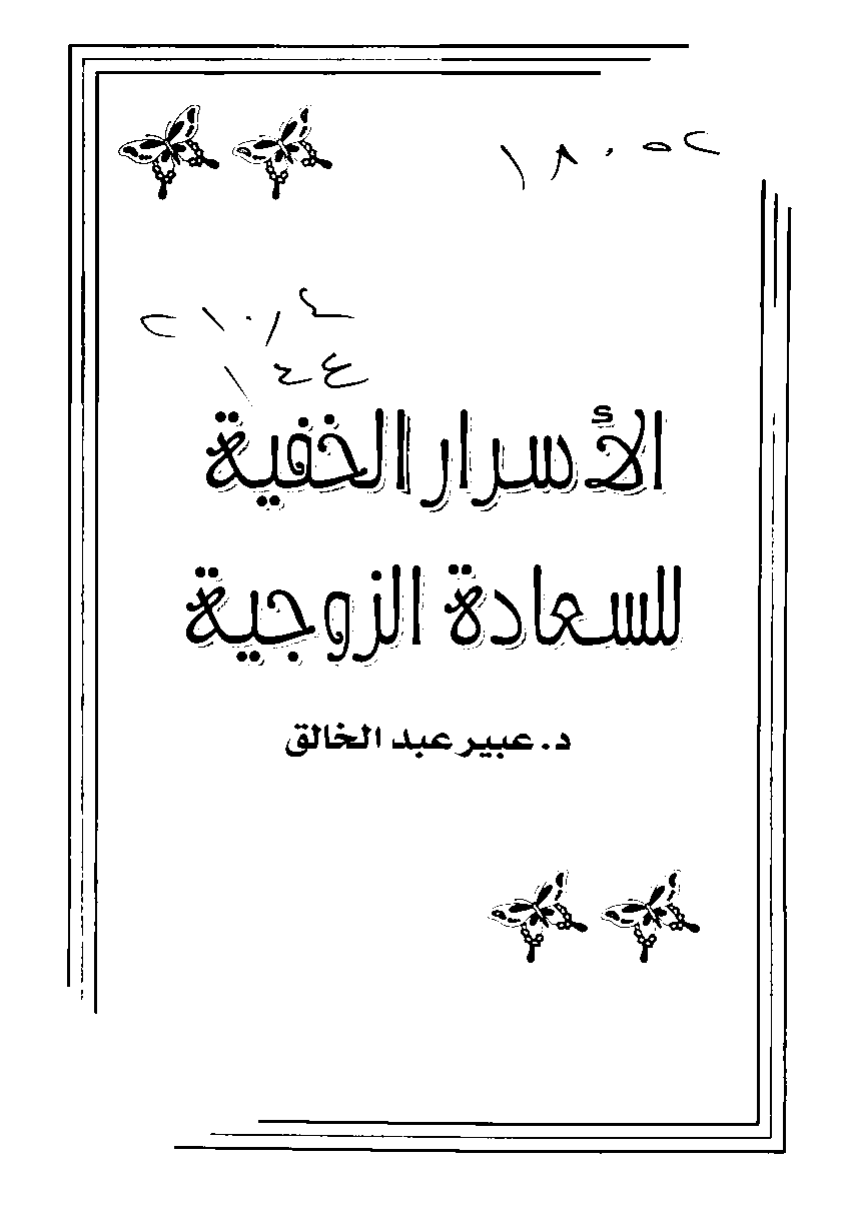 الأسرار الخفية
للسعادة الزوجية
د. عبير عبد الخالق